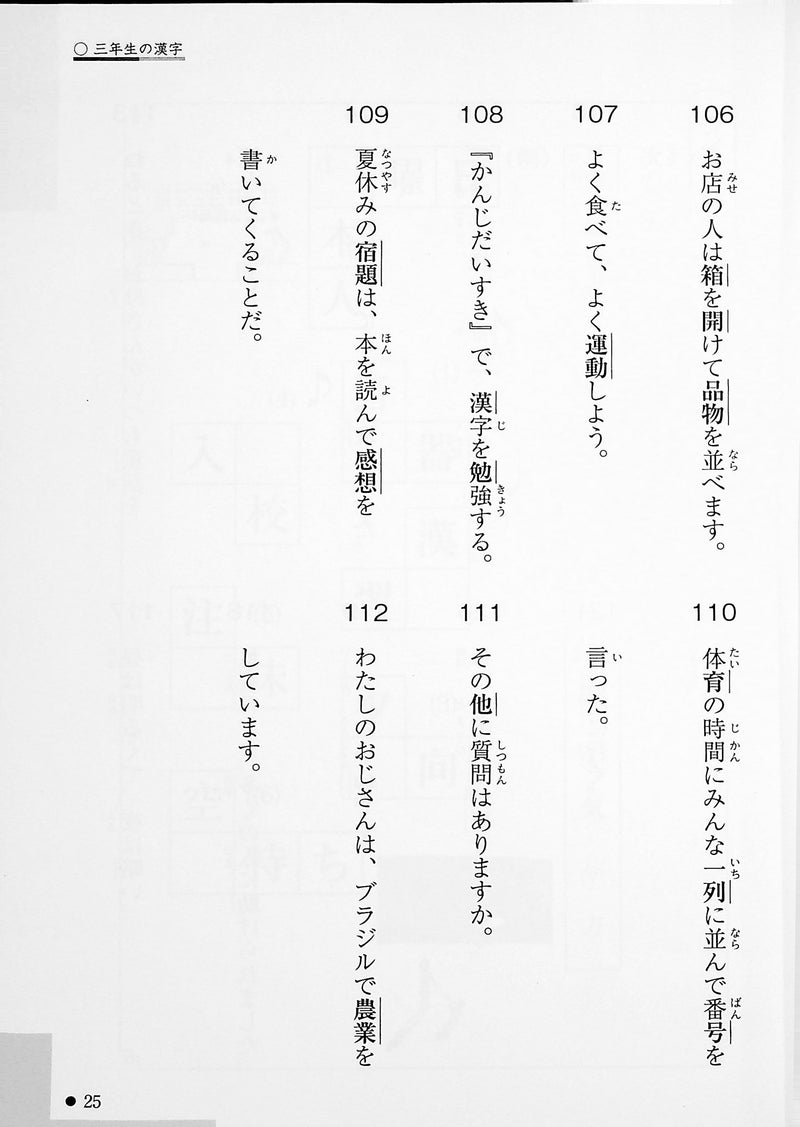 ○ 三年生の漢字
106
お店の人は箱を開けて品物を並べます。
107
よく食べて、よく運動しよう。
108
『かんじだいすき』で、漢字を勉強する。
109
夏休みの宿題は、本を読んで感想を
書いてくることだ。
110
体育の時間にみんな一列に並んで番号を
言った。
111
その他に質問はありますか。
112
わたしのおじさんは、ブラジルで農業を
しています。
● 25